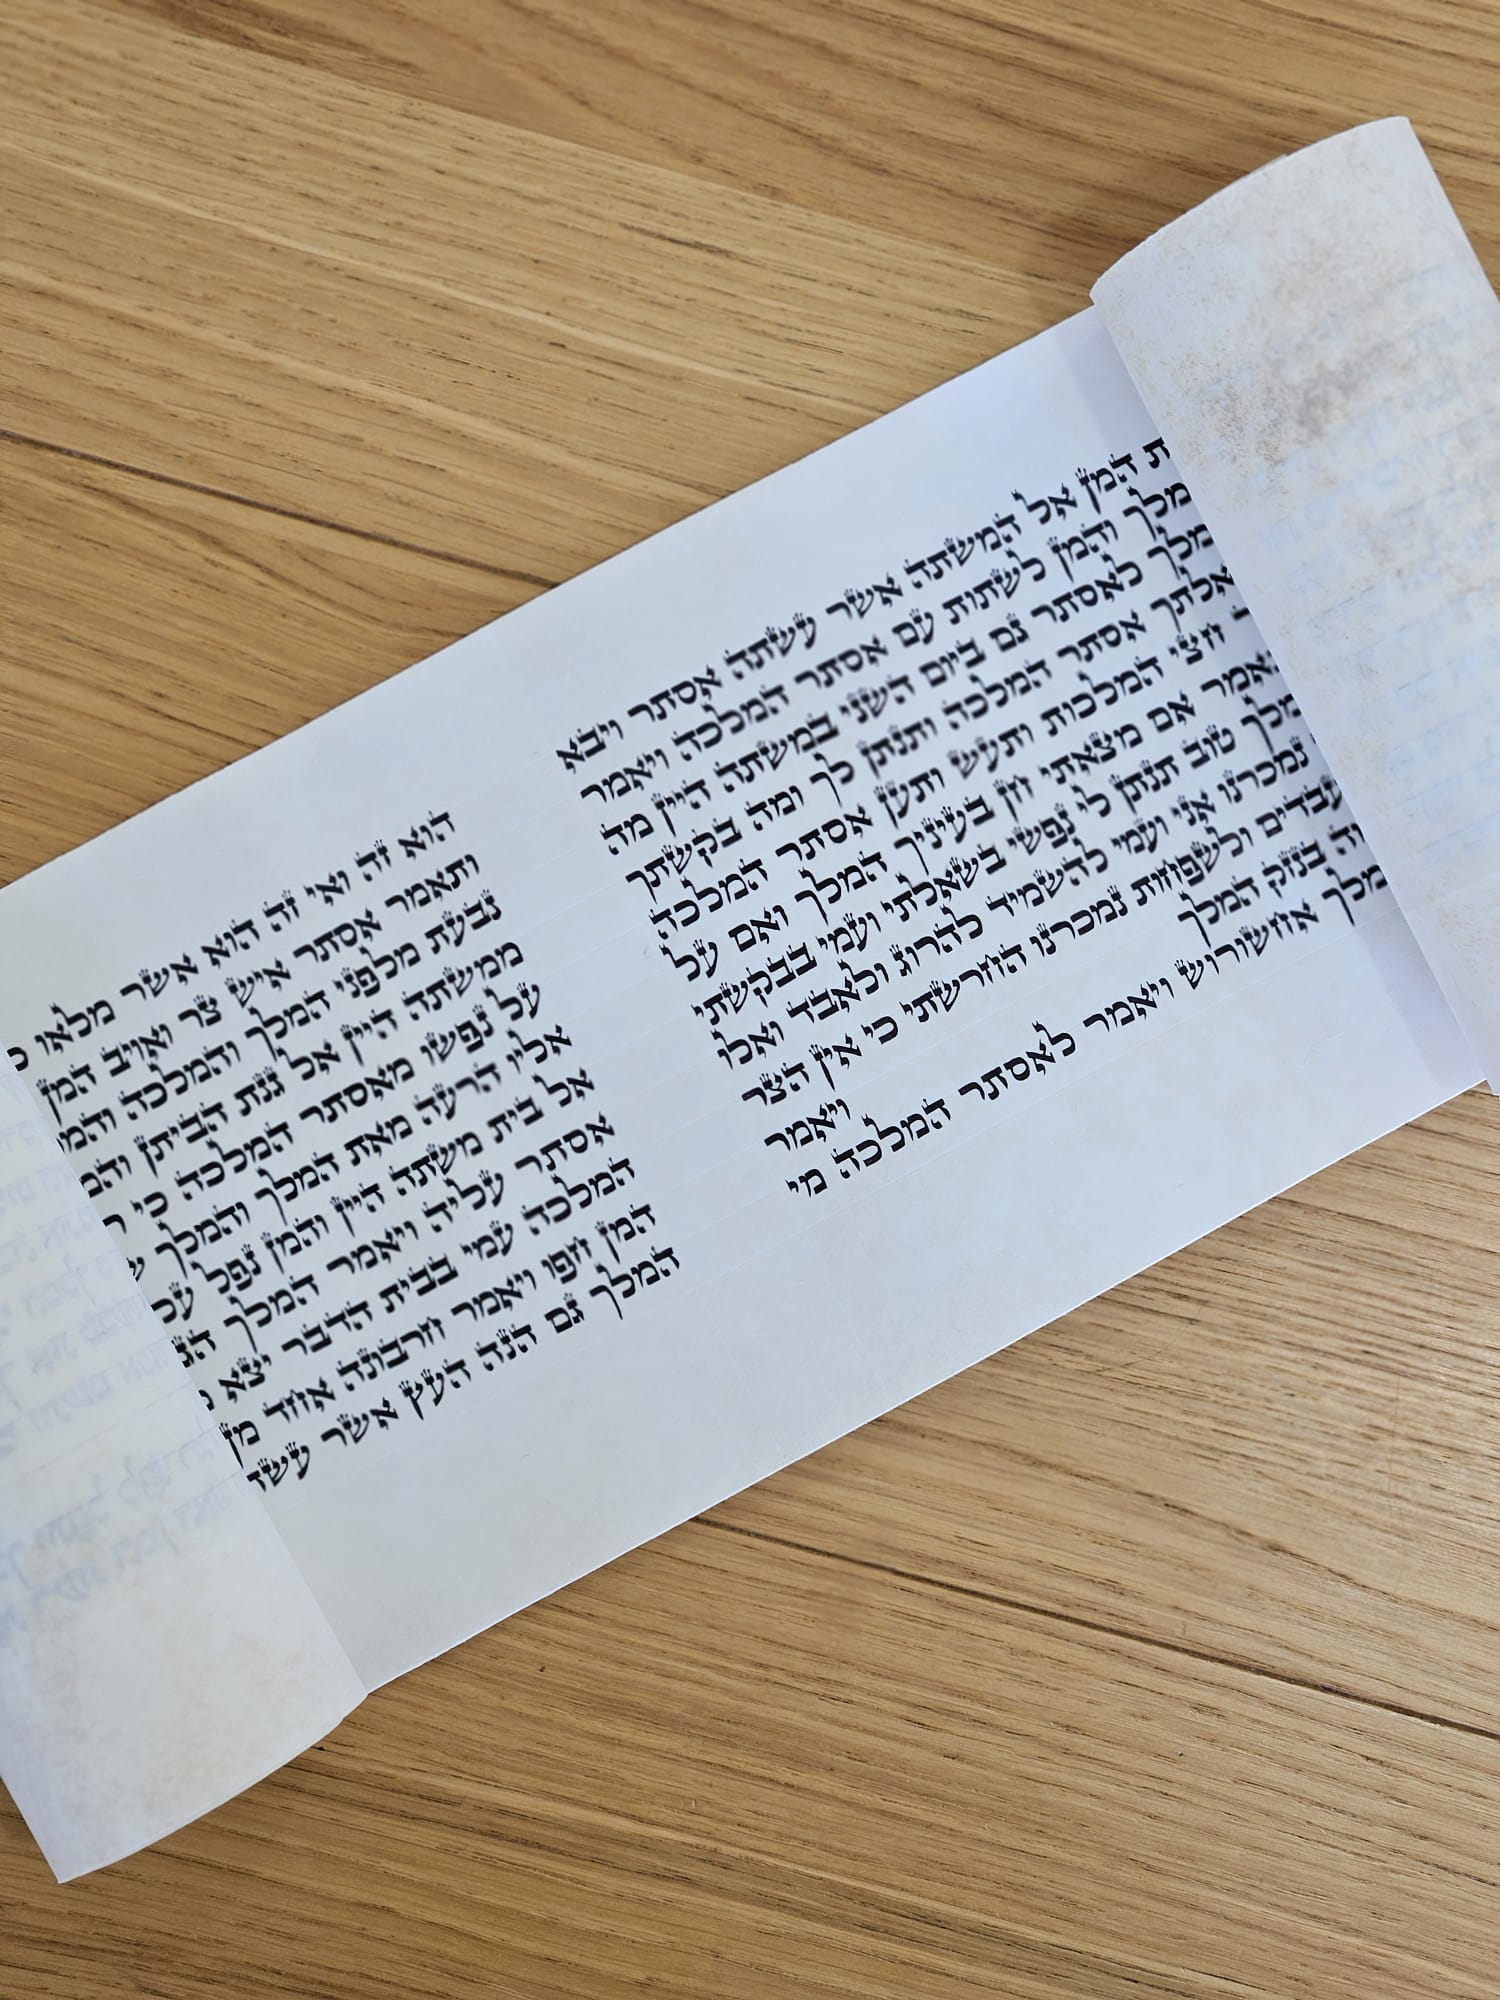 ת המן אל המשתה אשר עשתה אסתר ויבא
מלך והמן לשתות עם אסתר המלכה ויאמר
מלך לאסתר גם ביום השני במשתה היין מה
אלתך אסתר המלכה ותנתן לך ומה בקשתך
חצי המלכות ותעש ותען אסתר המלכה
תאמר אם מצאתי חן בעיניך המלך ואם על
מלך טוב תנתן לי נפשי בשאלתי ועמי בבקשתי
נמכרנו אני ועמי להשמיד להרוג ולאבד ואלו
עבדים ולשפחות נמכרנו החרשתי כי אין הצר
וה בנזק המלך ויאמר
מלך אחשורוש ויאמר לאסתר המלכה מי
הוא זה ואי זה הוא אשר מלאו
ותאמר אסתר איש צר ואויב המן
נבעת מלפני המלך והמלכה והמ
ממשתה היין אל גנת הביתן והמ
על נפשו מאסתר המלכה כי
אליו הרעה מאת המלך והמלך
אל בית משתה היין והמן נפל
אסתר עליה ויאמר המלך
המלכה עמי בבית הדבר יצא
המן חפו ויאמר חרבונה אחד מן
המלך גם הנה העץ אשר